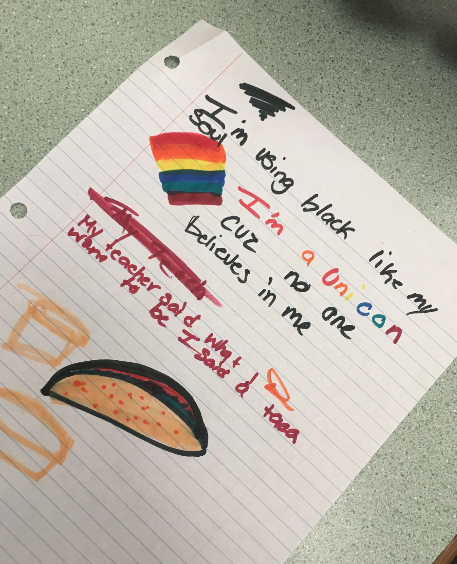 I'm using black like my
soul
I'm a Unicon
cuz no one
believes in me
My teacher said what I
want to be I said a
taco